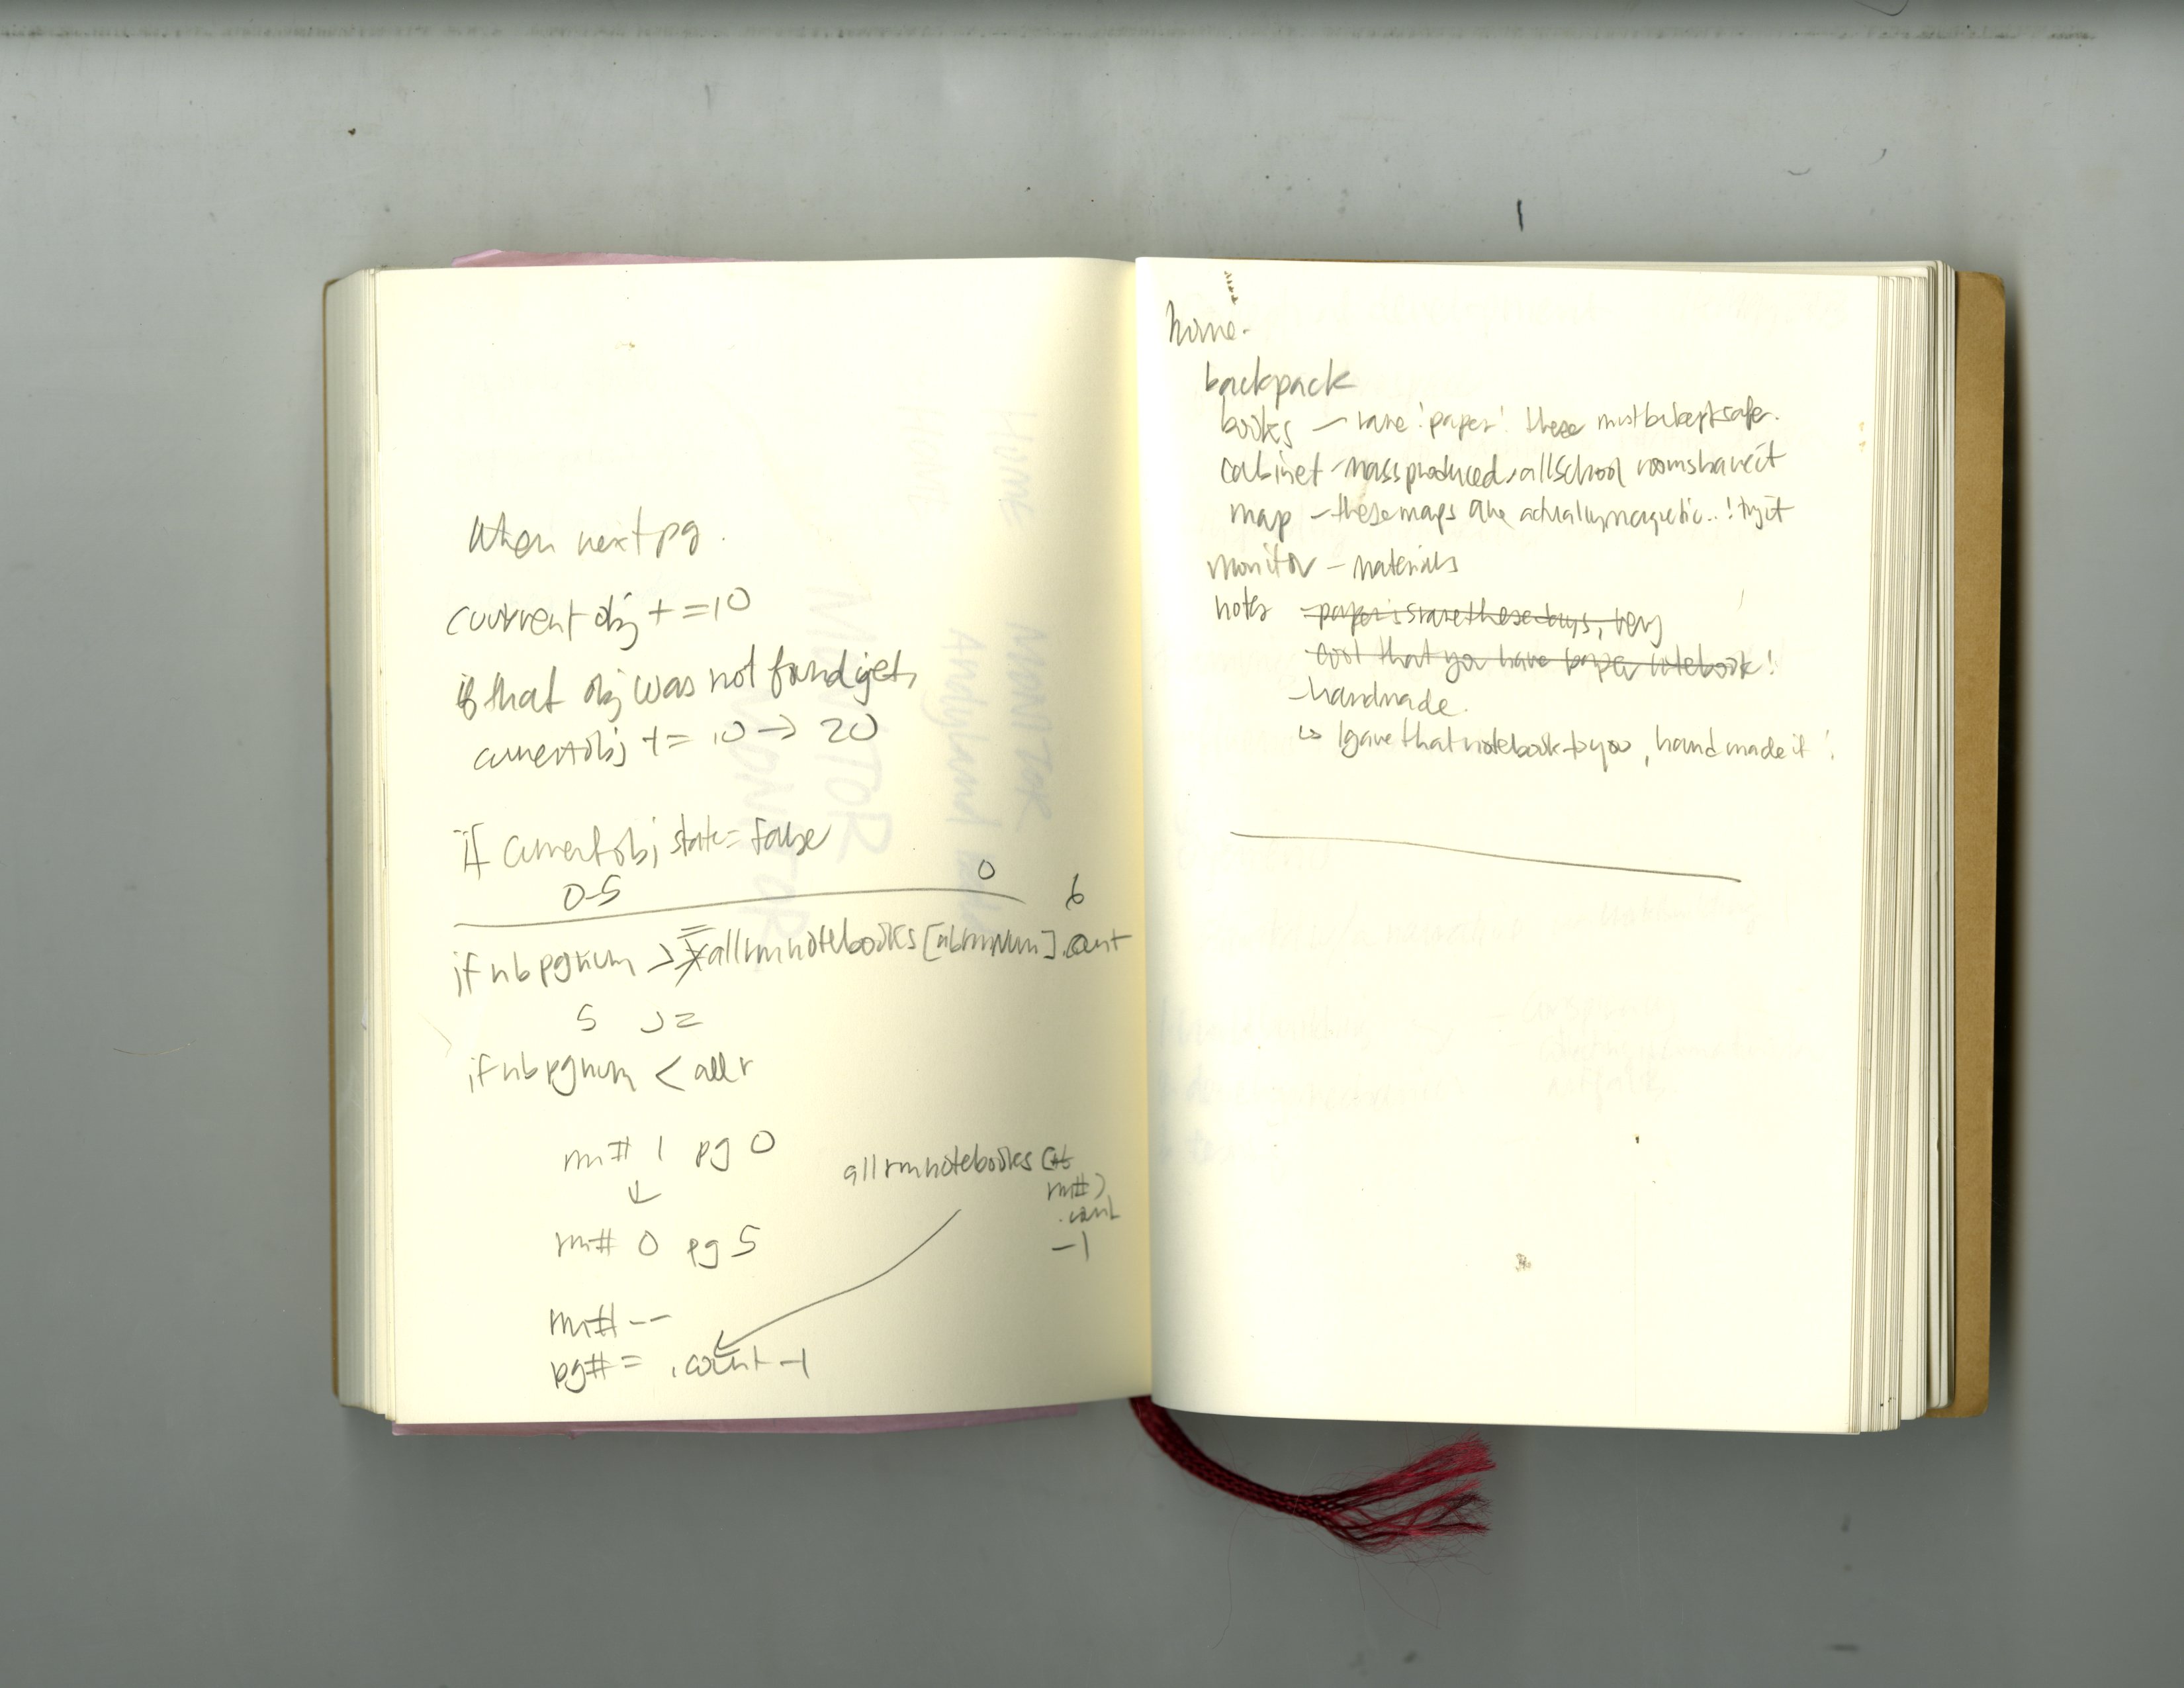 When next pg.
current obj += 10
if that obj was not found yet,
currentobj += 10 → 20
If currentobj state = false
0-5 0 6
if nb pgnum >= allrmnotebooks[nbrmnum].count
5 >=
if nb pgnum < allr
rm# 1 pg 0
↓
rm# 0 pg 5
allrmnotebooks(
rm#)
.count
-1
rm# --
pg# = .count -1
home-
backpack
books - rare! paper! these must be kept safe.
cabinet - mass produced, all school rooms have it
map - these maps are actually magnetic..! try it
monitor - materials
notes - paper is rare these days, very
cool that you have paper notebook!
- handmade.
↳ I gave that notebook to you, hand made it!